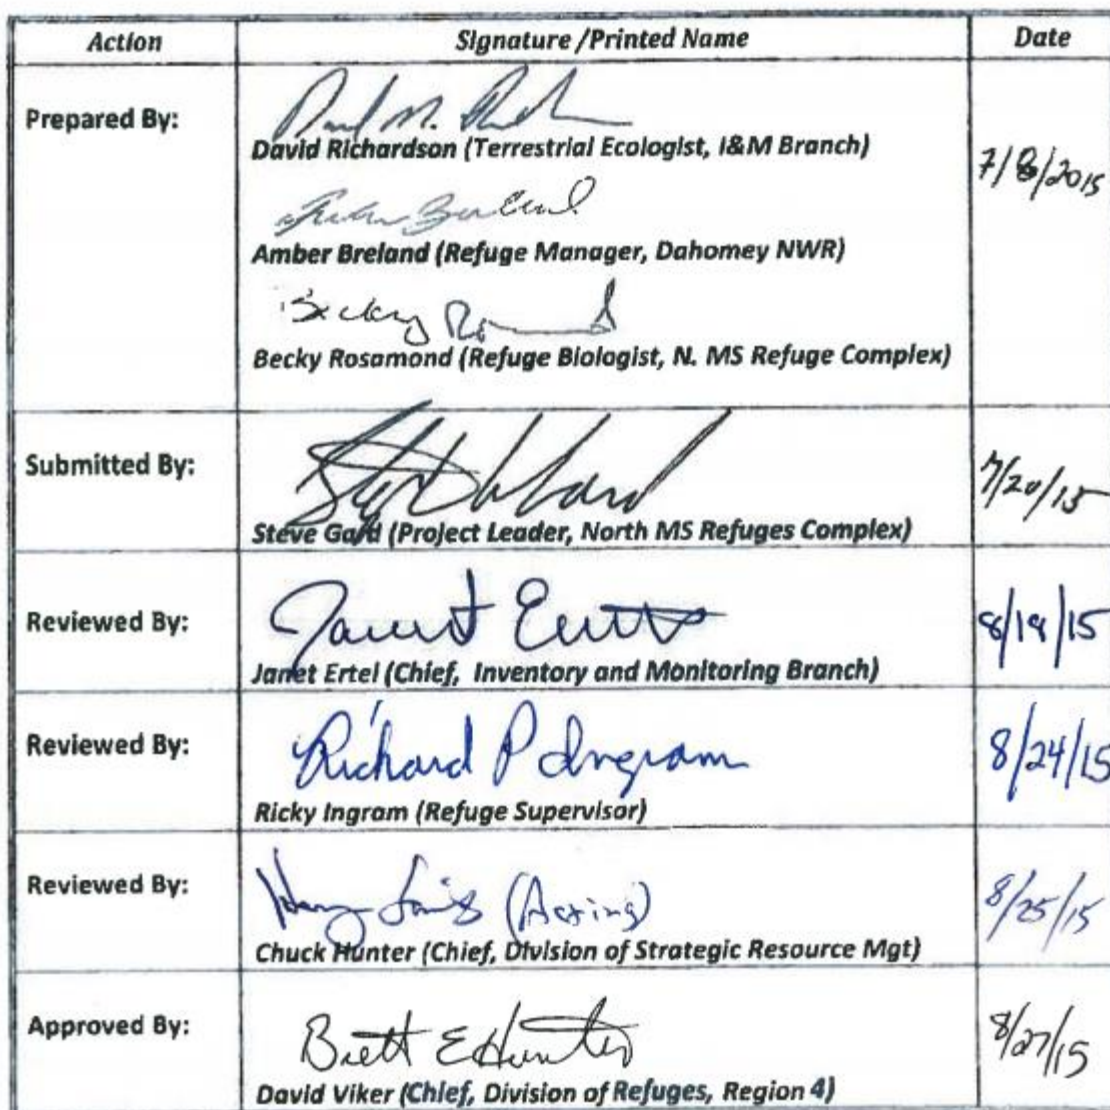 Action Signature /Printed Name Date
Prepared By:
David Richardson (Terrestrial Ecologist, I&M Branch)
7/8/2015
Amber Breland (Refuge Manager, Dahomey NWR)
Becky
Becky Rosamond (Refuge Biologist, N. MS Refuge Complex)
Submitted By:
7/20/15
Steve Gard (Project Leader, North MS Refuges Complex)
Reviewed By:
Janet 8/19/15
Janet Ertel (Chief, Inventory and Monitoring Branch)
Reviewed By:
Richard P Ingram 8/24/15
Ricky Ingram (Refuge Supervisor)
Reviewed By:
(Acting) 8/25/15
Chuck Hunter (Chief, Division of Strategic Resource Mgt)
Approved By:
Brett E Hunter 8/27/15
David Viker (Chief, Division of Refuges, Region 4)